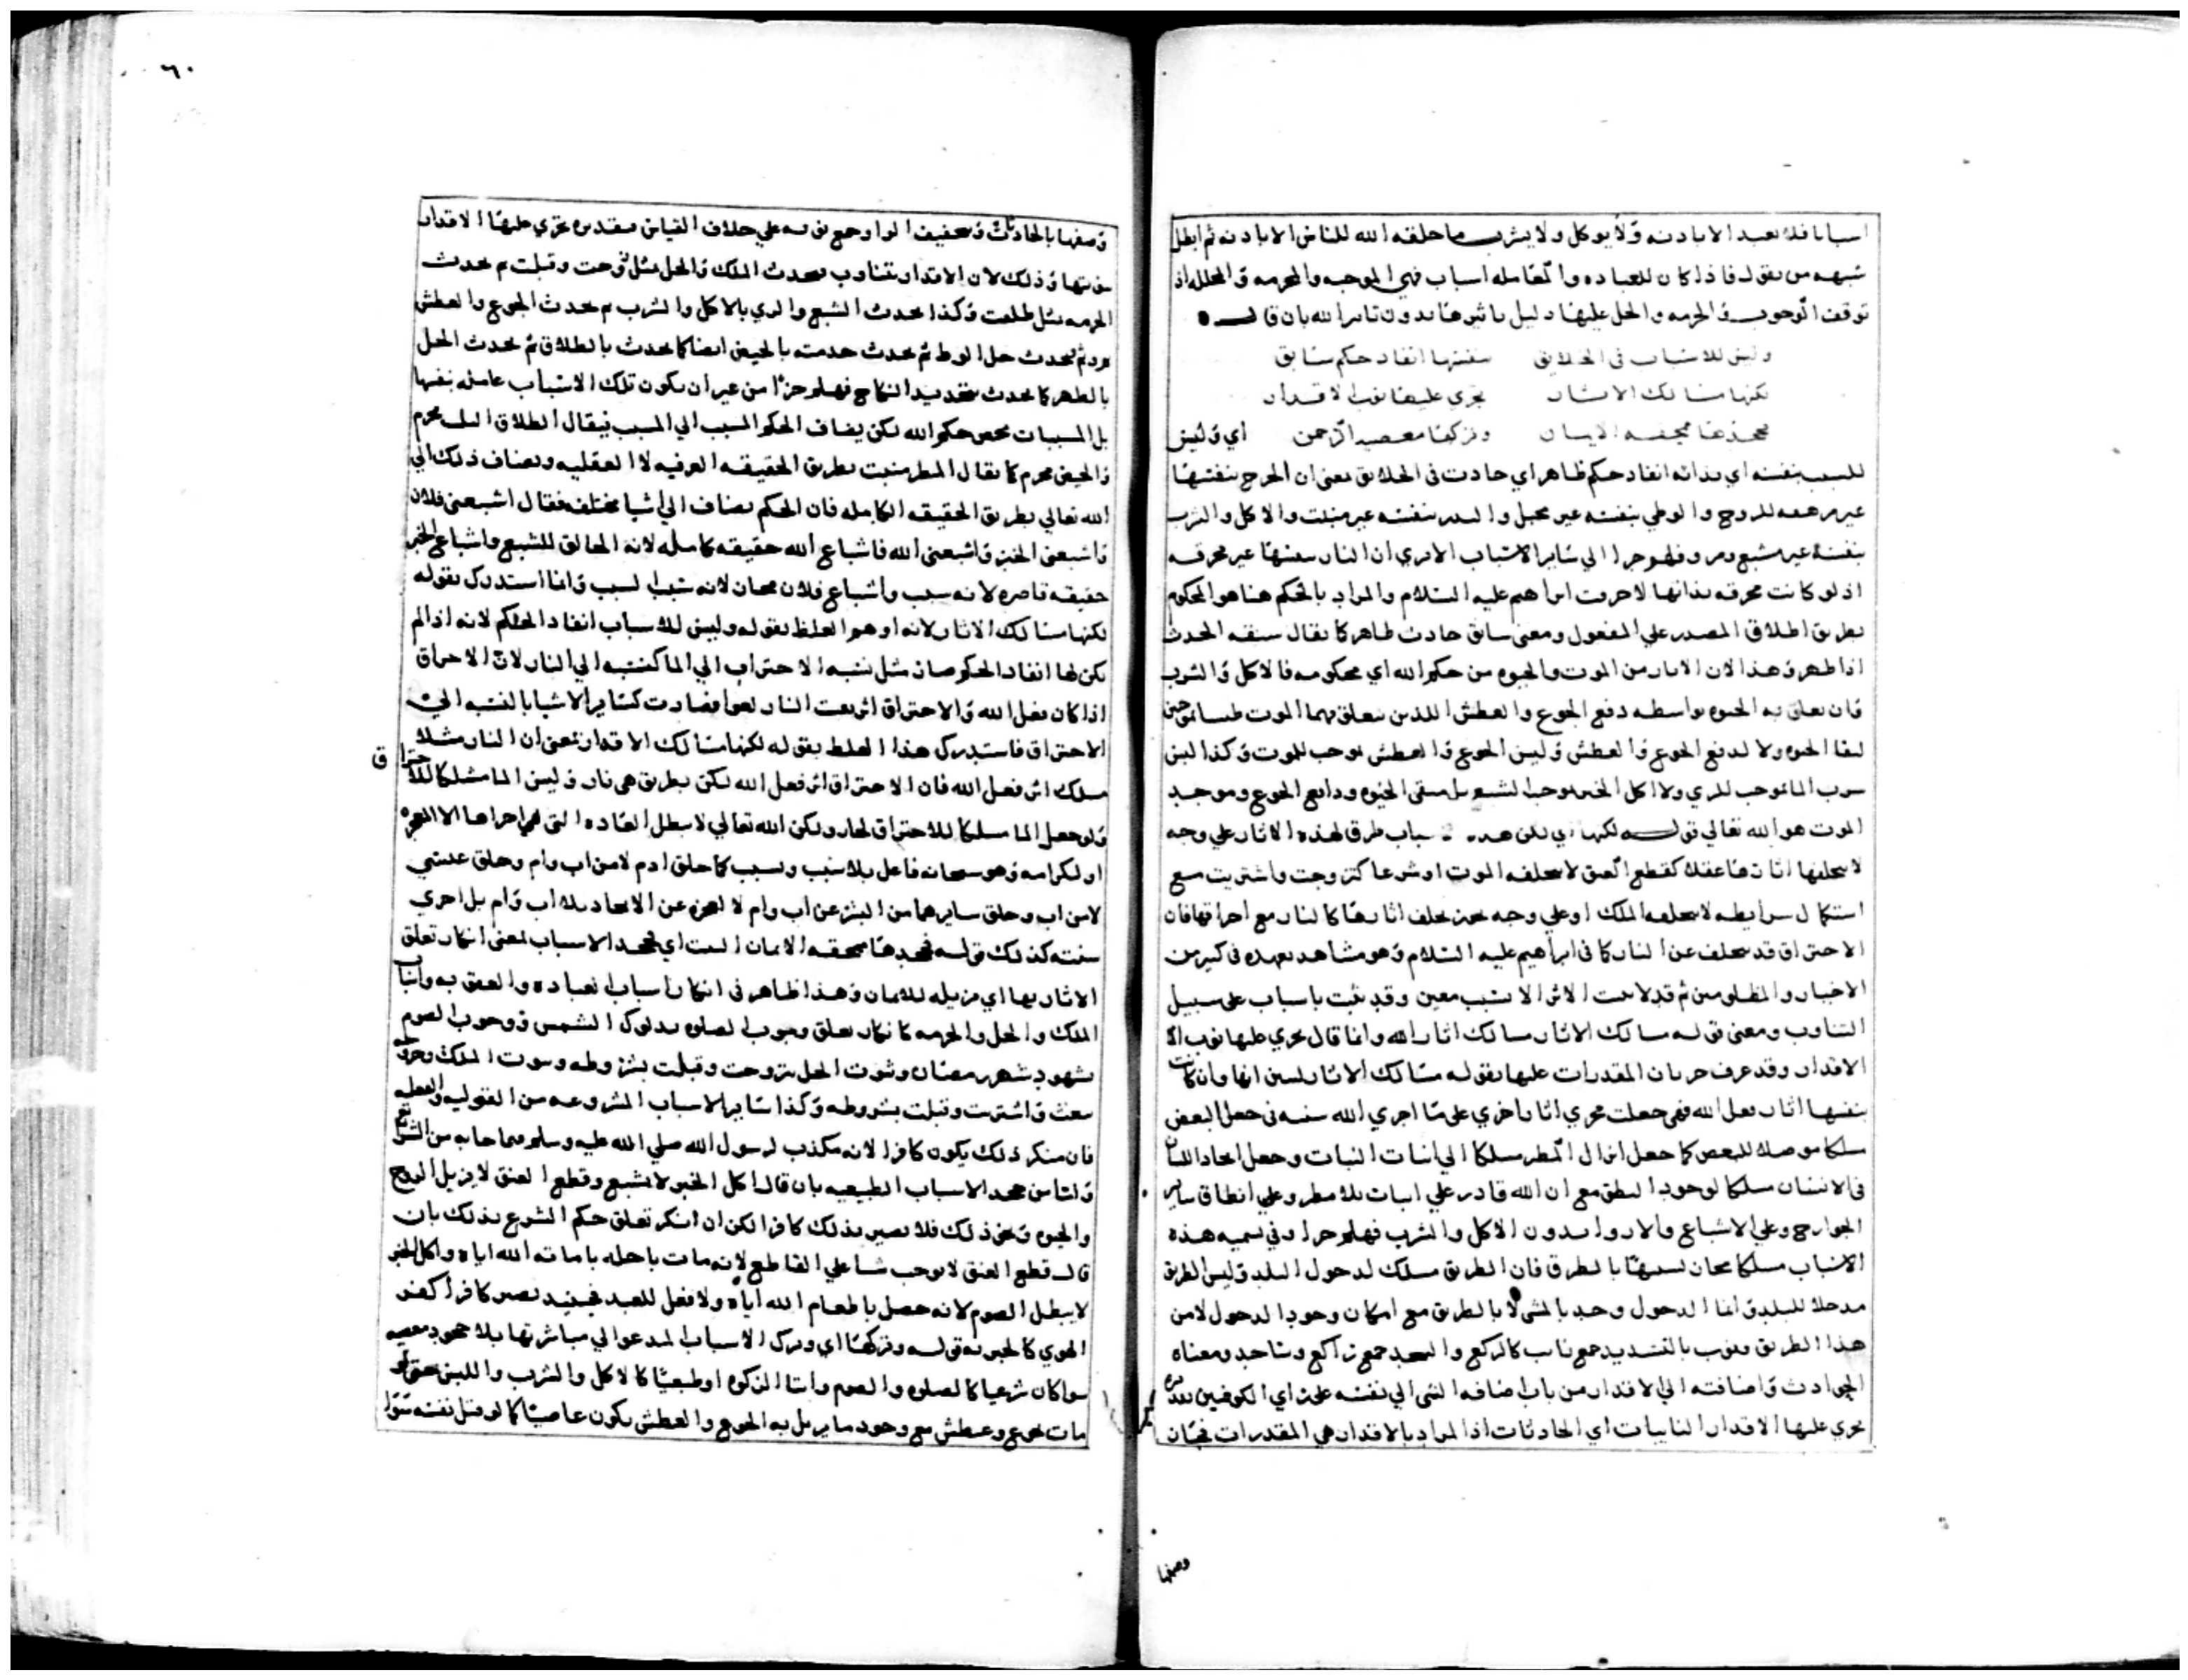 اسبابا فلا نعبد الا باذنه ولا يوكل ولا يشرب ما خلقه الله للناس الا باذنه ثم ابطل
شبهه من يقول فاذا كان للعباده والمعامله اسباب فهي الموجبه والمحرمه والمحلله اذ
توقف الوجوب والحرمه والحل عليها دليل تاثيرها بدون تاثير الله بان قال
وليس للاسباب في الخلايق بنفسها انفاد حكم سابق
لكنها مسالك الاثار يجري عليها نوب الاقدار
فجحدها مجحفه الايمان وتركها معصيه الرحمن اي وليس
للسبب بنفسه اي بذاته انفاد حكم ظاهر اي حادث في الخلايق بمعنى ان الجرح بنفسها
غير مزهقه للروح والوطي بنفسه غير محبل والبذر بنفسه غير منبت والاكل والشرب
بنفسه غير مشبع ومرو وهلم جرا الي ساير الاسباب الا تري ان النار بنفسها غير محرقه
اذ لو كانت محرقه بذاتها لاحرقت ابراهيم عليه السلام والمراد بالحكم هنا هو المحكوم
بطريق اطلاق المصدر علي المفعول ومعني سابق حادث ظاهر كما يقال سبقه الحدث
اذا ظهر وهذا لان الاثار من الموت والحيوه من حكم الله اي محكومه فالاكل والشرب
وان تعلق به الحيوه بواسطه دفع الجوع والعطش اللذين يتعلق بهما الموت
لبقا الحيوه ولا لدفع الجوع والعطش وليس الجوع والعطش يوجب للموت وكذا ليس
شرب الما يوجب للري ولا اكل الخبز يوجب الشبع بل مبقي الحيوه ودافع الجوع وموجد
الموت هو الله تعالي قوله لكنها اي لكن هذه الاسباب طرق لهذه الاثار علي وجه
لا يخلفها اثارها عقلا كقطع العنق لا يخلفه الموت او شرعا كتزوجت واشتريت مع
استكمال شرايطه لا يخلفه الملك او علي وجه يجوز تخلف اثارها كالنار مع احراقها فان
الاحتراق قد يتخلف عن النار كما في ابراهيم عليه السلام وهو مشاهد بعهده في كثير من
الاخيار والمظلومين ثم قد لا يثبت الاثر الا بسبب معين وقد يثبت باسباب على سبيل
التناوب ومعنى قوله مسالك الاثار مسالك اثار الله وانما قال يجري عليها نوب الا
الاقدار وقد عرف جريان المقدرات عليها بقوله مسالك الاثار ليبين انها وان كانت
بنفسها اثار فعل الله فهي جعلت مجري اثار اخري على ما اجري الله سنته في جعل البعض
مسلكا موصلا للبعض كما جعل انزال المطر مسلكا الي انبات النبات وجعل ايجاد اللسان
في الانسان مسلكا لوجود النطق مع ان الله قادر علي انبات بلا مطر وعلي انطاق ساير
الجوارح وعلي الاشباع والاروا بدون الاكل والشرب فهلم جرا وفي تسميه هذه
الاسباب مسلكا مجاز لشبهها بالطرق فان الطريق مسلك لدخول البلد وليس الطريق
مدخلا للبلد وانما الدخول وجد بالمشي لا بالطريق مع امكان وجود الدخول لا من
هذا الطريق ونوب بالتشديد جمع نايب كالركع والسجد جمع راكع وساجد ومعناه
الحوادث واضافته الي الاقدار من باب اضافه الشي الي نفسه على راي الكوفيين تقديره
يجري عليها الاقدار النايبات اي الحادثات اذ المراد بالاقدار هي المقدرات فجاز
وصفها
٦٠
وصفها بالحادثات وتخفيف الواو جمع نوبه علي خلاف القياس وتقديره يجري عليها الاقدار
بنوبتها وذلك لان الاقدار تتناوب فيحدث الملك والحل بمثل تزوجت وقبلت ثم يحدث
الحرمه بمثل طلقت وكذا يحدث الشبع والري بالاكل والشرب ثم يحدث الجوع والعطش
ثم يحدث حل الوطء ثم يحدث حرمته بالحيض ايضا كما يحدث بالطلاق ثم يحدث الحل
بالطهر كما يحدث بتجديد النكاح فهلم جرا من غير ان يكون تلك الاسباب عامله بنفسها
بل المسببات محض حكم الله لكن يضاف الحكم المسبب الي السبب فيقال الطلاق محرم
والحيض محرم كما يقال المطر منبت بطريق الحقيقه العرفيه لا العقليه ويضاف ذلك الي
الله تعالي بطريق الحقيقه الكامله فان الحكم يضاف الي اشيا مختلفه فقال اشبعني فلان
واشبعني الخبز واشبعني الله فاشباع الله حقيقه كامله لانه الخالق للشبع واشباع الخبز
حقيقه قاصره لانه سبب واشباع فلان مجاز لانه سبب السبب وانما استدرك بقوله
لكنها مسالك الاثار لانه اوهم الغلط بقوله وليس للاسباب انفاد الحكم لانه اذا لم
يكن لها انفاد الحكم صار مثل نسبه الاحتراق الي الما كنسبته الي النار لان الاحراق
اذا كان بفعل الله والاحتراق اثر بقيت النار لغوا فصارت كساير الاشيا بالنسبه الي
الاحتراق فاستدرك هذا الغلط بقوله لكنها مسالك الاقدار بمعنى ان النار مثلا
مسلك اثر فعل الله فان الاحتراق اثر فعل الله لكن بطريق هي نار وليس الما مسلكا للاحتراق
ولو جعل الما مسلكا للاحتراق لجاز ولكن الله تعالي لا يبطل العاده التي اجراها الا لمعجزه
او لكرامه وهو سبحانه فاعل بلا سبب وبسبب كما خلق ادم لا من اب وام وخلق عيسي
لا من اب وخلق سايرهما من البشر عن اب وام لا لعجزه عن الايجاد بلا اب وام بل اجري
سنته كذلك قوله فجحدها مجحفه الايمان البيت اي فجحد الاسباب بمعنى انكار تعلق
الاثار بها اي مزيله للايمان وهذا ظاهر في انكار اسباب العباده والعقوبه واسباب
الملك والحل والحرمه كانكار تعلق وجوب الصلوه بدلوك الشمس ووجوب الصوم
بشهود شهر رمضان وثبوت الحل بتزوجت وقبلت بشروطه وثبوت الملك وحرمته
ببعت واشتريت وقبلت بشروطه وكذا ساير الاسباب المشروعه من القوليه والفعليه
فان منكر ذلك يكون كافرا لانه مكذب لرسول الله صلي الله عليه وسلم فيما جا به من الشرايع
واما من جحد الاسباب الطبيعيه بان قال اكل الخبز لا يشبع وقطع العنق لا يزيل الروح
والحيوه ونحو ذلك فلا يصير بذلك كافرا لكن ان انكر تعلق حكم الشرع بذلك بان
قال قطع العنق لا يوجب شيا علي القاطع لانه مات باجله باماته الله اياه واكل الخبز
لا يبطل الصوم لانه حصل باطعام الله اياه ولا فعل للعبد فحينيذ يصير كافرا كفر
الهوي كالجبريه قوله وتركها اي وترك الاسباب المدعو الي مباشرتها بلا جحود معصيه
سوا كان شرعيا كالصلوه والصوم وايتا الزكوه او طبعيا كالاكل والشرب واللبس حتى لو
مات بجوع وعطش مع وجود ما يزيل به الجوع والعطش يكون عاصيا كما لو قتل نفسه سوا